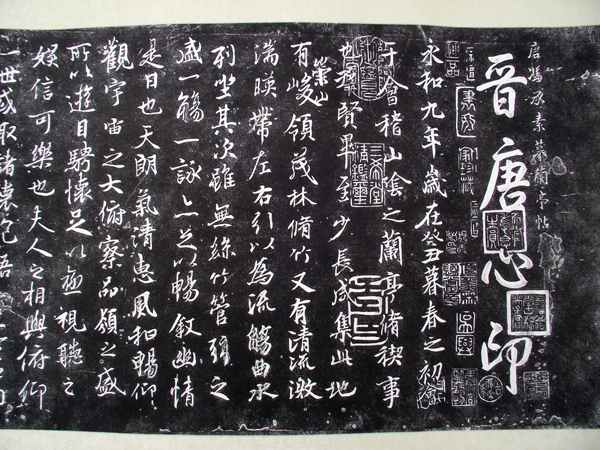 唐馮承素摹蘭亭帖
晉唐心印
永和九年歲在癸丑暮春之初會
于會稽山陰之蘭亭脩稧事
也羣賢畢至少長咸集此地
有崇山峻領茂林脩竹又有清流激
湍暎帶左右引以為流觴曲水
列坐其次雖無絲竹管弦之
盛一觴一詠亦足以暢敘幽情
是日也天朗氣清惠風和暢仰
觀宇宙之大俯察品類之盛
所以遊目騁懷足以極視聽之
娛信可樂也夫人之相與俯仰
一世或取諸懷抱